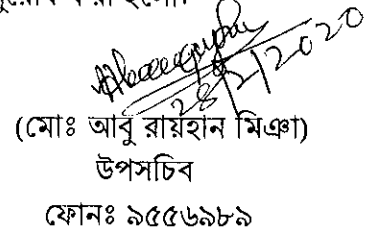 28/2/2020
(মোঃ আবু রায়হান মিঞা)
উপসচিব
ফোনঃ ৯৫৫৬৯৮৯